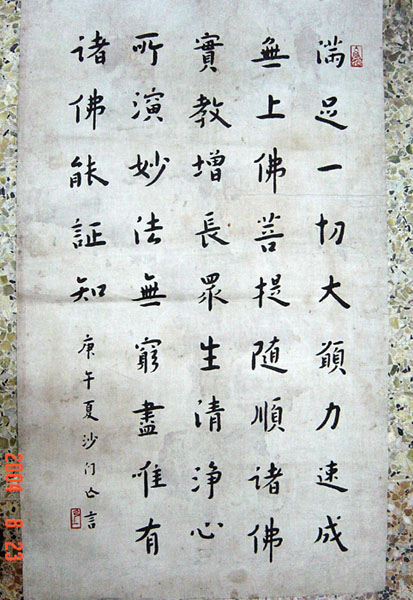 满足一切大願力速成
無上佛菩提随順諸佛
實教增長眾生清净心
所演妙法無窮盡唯有
諸佛能証知
庚午夏沙门亡言
2004 8 23